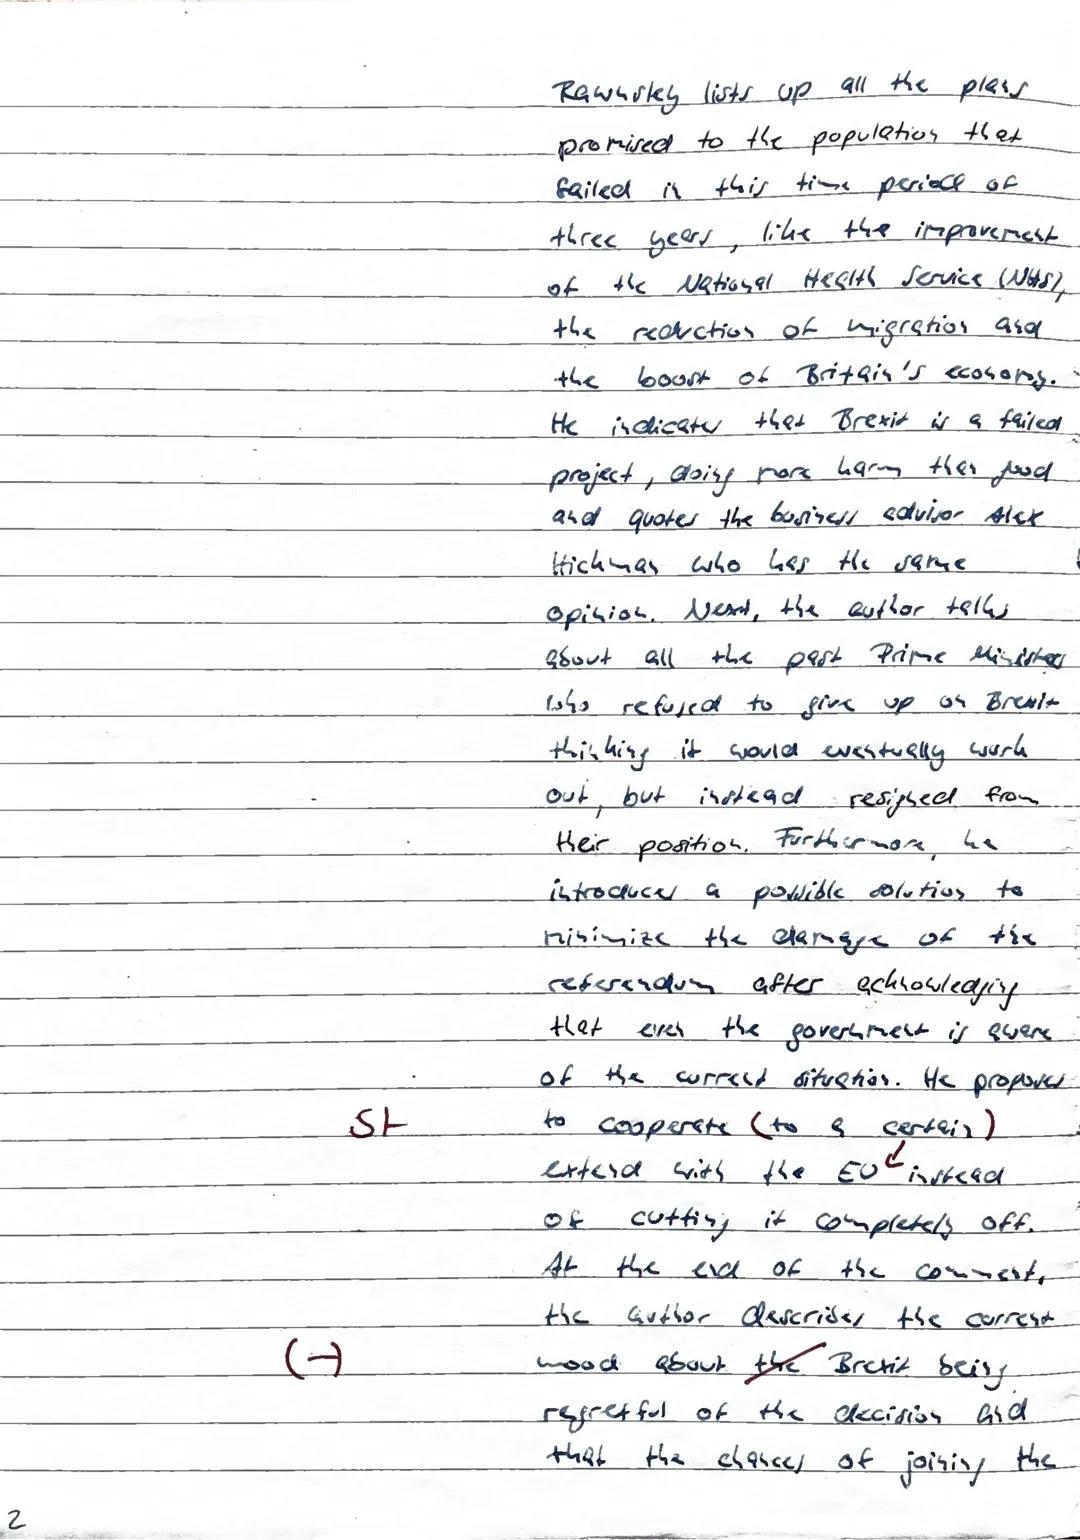 Rawnsley lists up all the plans
promised to the population that
failed in this time period of
three years, like the improvement
of the National Health Service (NHS),
the reduction of migration and
the boost of Britain's economy.
He indicates that Brexit is a failed
project, doing more harm than good
and quotes the business advisor Alex
Hickman who has the same
opinion. Next, the author talks
about all the past Prime Ministers
who refused to give up on Brexit
thinking it would eventually work
out, but instead resigned from
their position. Furthermore, he
introduces a possible solution to
minimize the damage of the
referendum after acknowledging
that even the government is aware
of the current situation. He proposes
St to cooperate (to a certain)
extend with the EU instead
of cutting it completely off.
At the end of the comment,
the author describes the current
(-) mood about the Brexit being
regretful of the decision and
that the chances of joining the
2